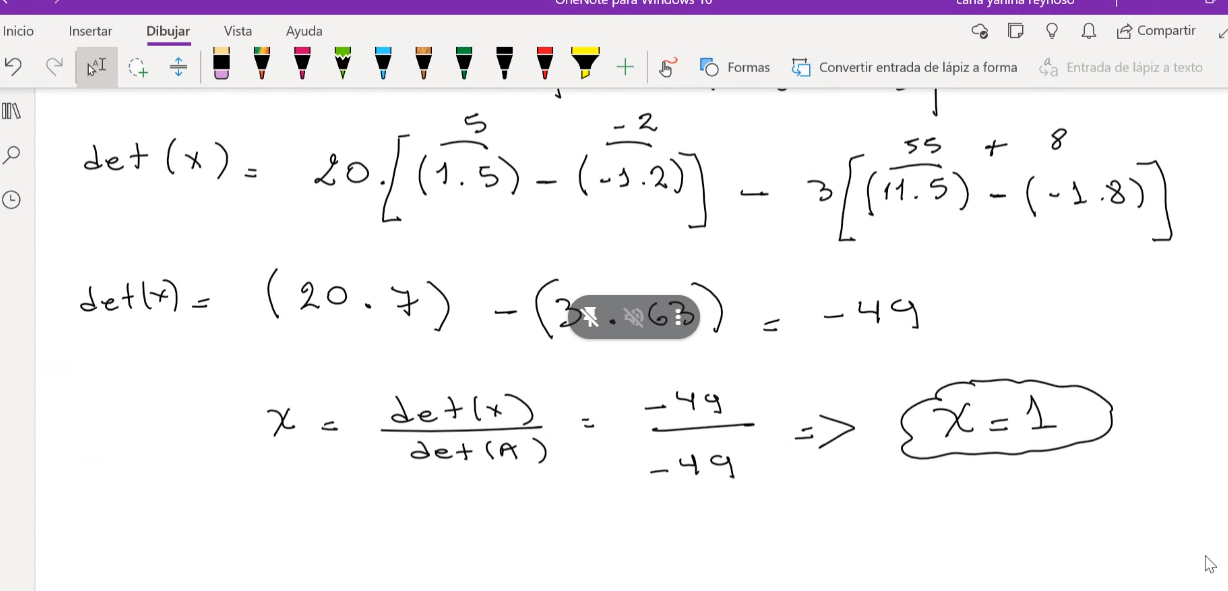 OneNote para Windows 10 carla yanina reynoso
Inicio Insertar Dibujar Vista Ayuda Compartir
Formas Convertir entrada de lápiz a forma Entrada de lápiz a texto
5 -2 55 + 8
det (x) = 20.[(1.5) - (-1.2)] - 3[(11.5) - (-1.8)]
det(x) = (20.7) - (3.63) = -49
x = det(x) / det(A) = -49 / -49 => x = 1